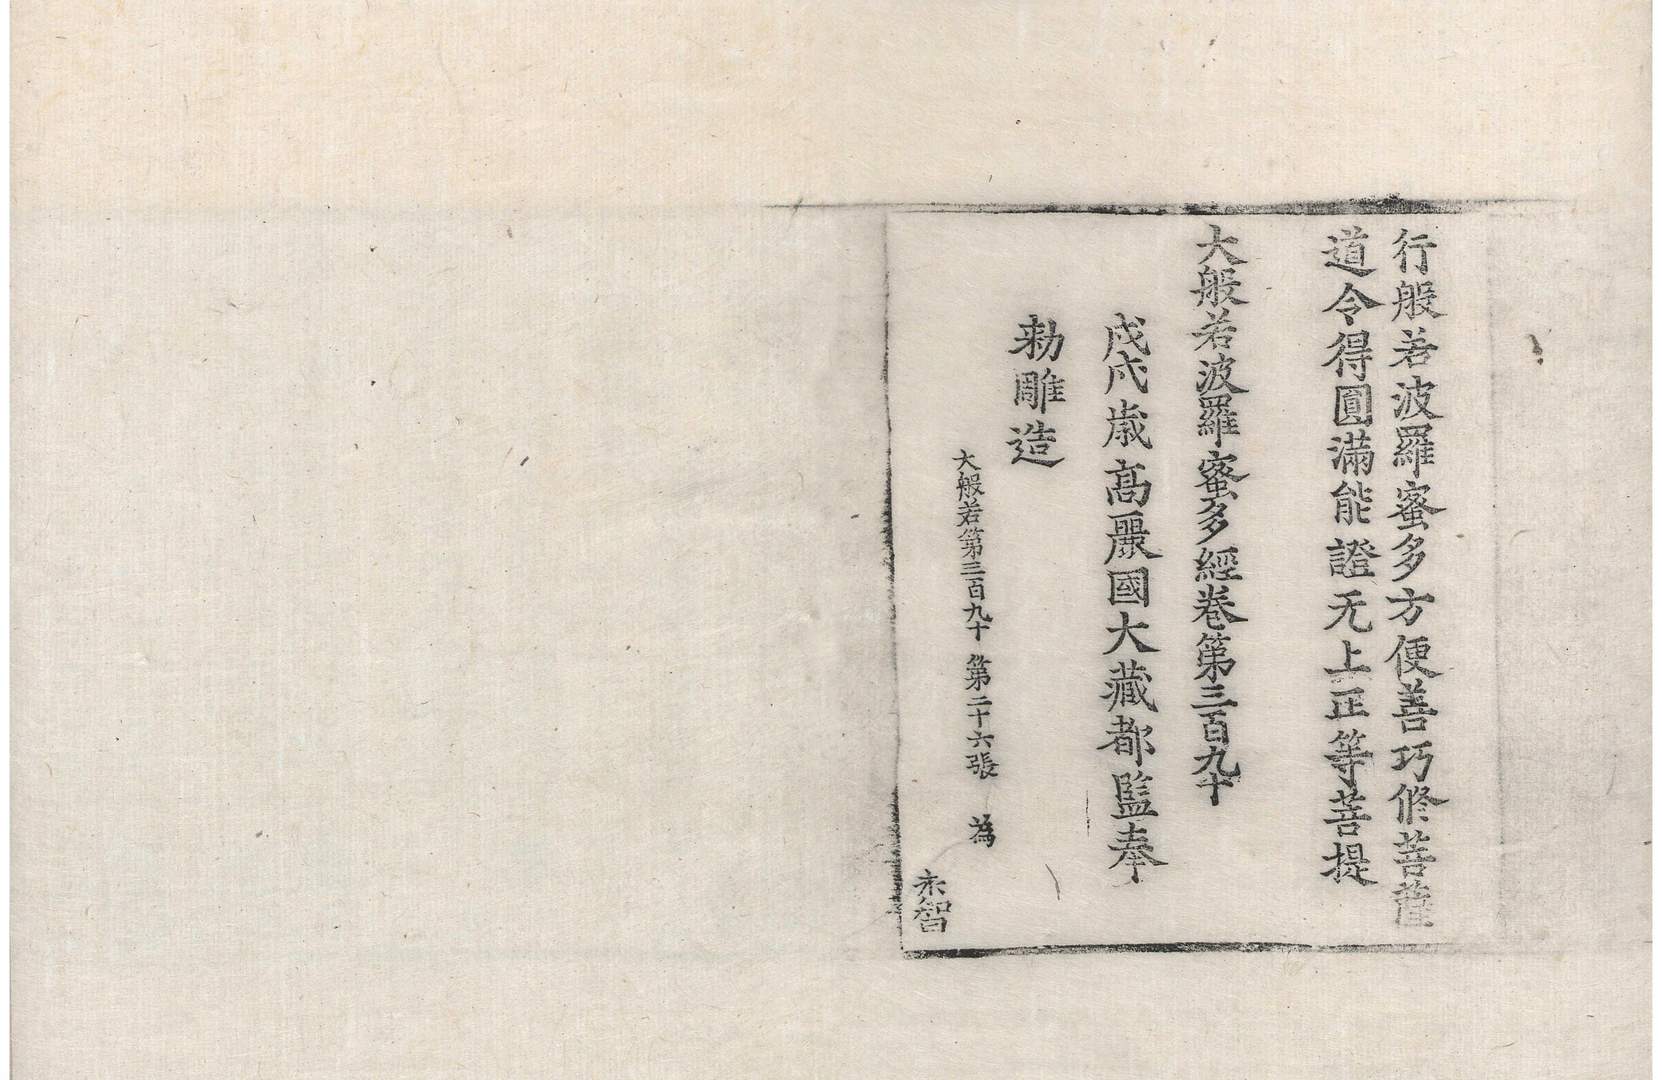 行般若波羅蜜多方便善巧修菩薩
道令得圓滿能證无上正等菩提
大般若波羅蜜多經卷第三百九十
戊戌歲高麗國大藏都監奉
勅雕造
大般若第三百九十 第二十六張 為
智